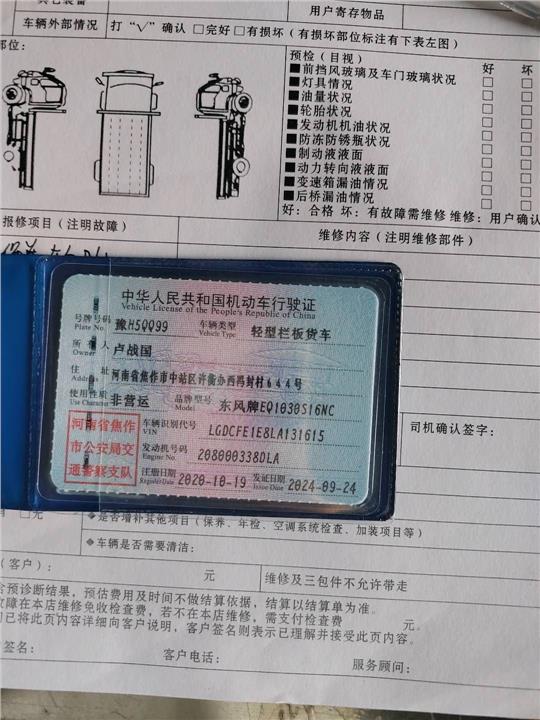 用户寄存物品
车辆外部情况 打“√”确认 □完好 □有损坏（有损坏部位标注有下表左图）
部位：
预检（目视） 好 坏
■前挡风玻璃及车门玻璃状况 □ □
■灯具情况 □ □
■油量状况 □ □
■轮胎状况 □ □
■发动机机油状况 □ □
■防冻防锈瓶状况 □ □
■制动液液面 □ □
■动力转向液液面 □ □
■变速箱漏油情况 □ □
■后桥漏油情况 □ □
好：合格 坏：有故障需维修 维修：用户确认
报修项目（注明故障）
维修内容（注明维修部件）
中华人民共和国机动车行驶证
Vehicle License of the People's Republic of China
号牌号码 豫H5QQ99 车辆类型 轻型栏板货车
Plate No. Vehicle Type
所有人 卢战国
Owner
住址 河南省焦作市中站区许衡办西冯封村644号
Address
使用性质 非营运 品牌型号 东风牌EQ1030S16NC
Use Character Model
河南省焦作
市公安局交
通警察支队
车辆识别代号 LGDCFE1E8LA131615
VIN
发动机号码 208000338DLA
Engine No.
注册日期 2020-10-19 发证日期 2024-09-24
Register Date Issue Date
司机确认签字：
□无
◆是否增补其他项目（保养、年检、空调系统检查、加装项目等）
◆车辆是否需要清洁：
（客户）： 元 维修及三包件不允许带走
含预诊断结果，预估费用及时间不做结算依据，结算以结算单为准。
故障在本店维修免收检查费，若不在本店维修，需支付检查费 元。
们已将此页内容详细向客户说明，客户签名则表示已理解并接受此页内容。
签名： 客户电话： 服务顾问：